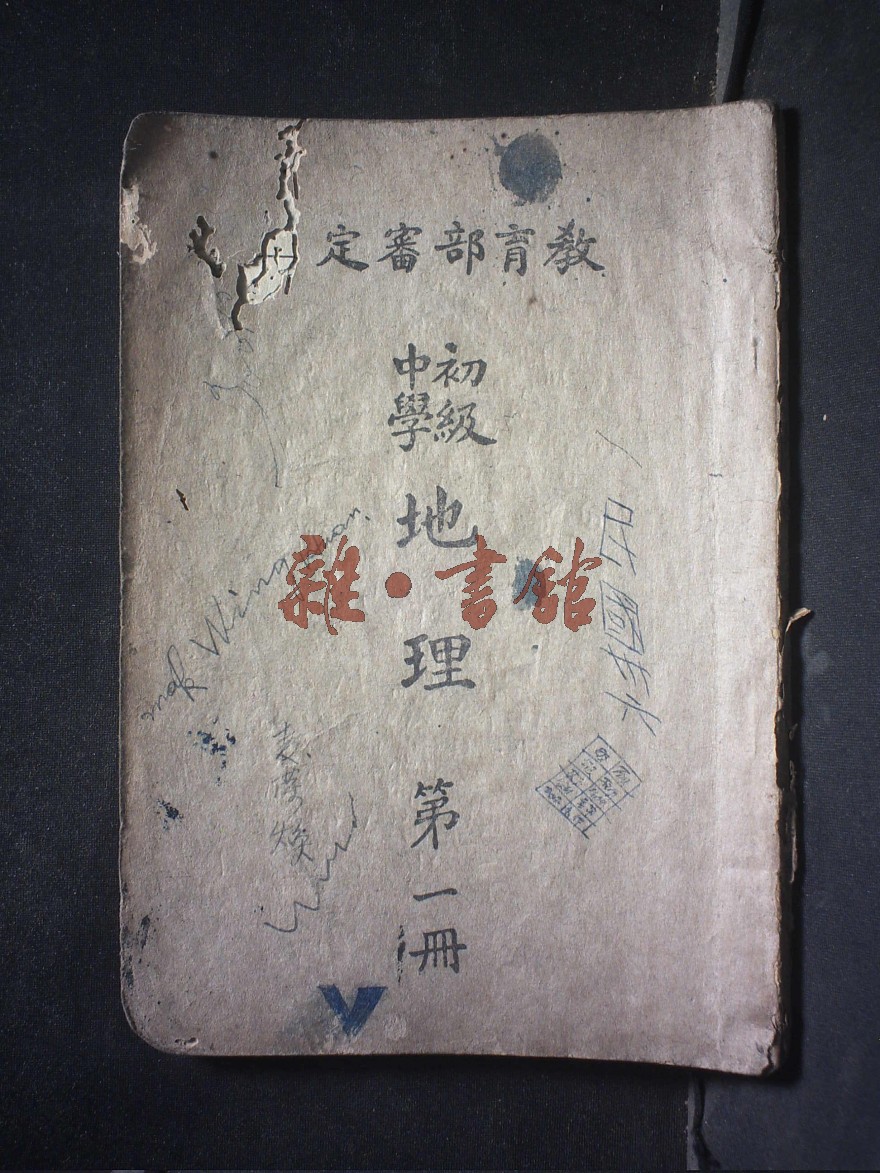 教育部審定
初級
中學
地理 第一冊
雜·書館
mak Wing